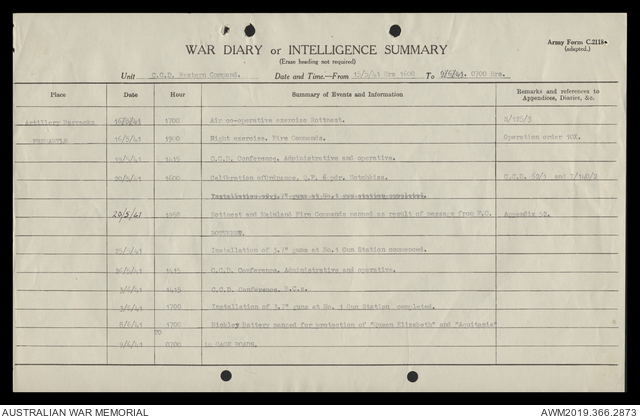 Army Form C.2118.
(adapted.)
WAR DIARY or INTELLIGENCE SUMMARY
(Erase heading not required)
Unit C.C.D. Western Command. Date and Time.—From 15/5/41 Hrs 1600 To 9/6/41. 0700 Hrs.
Place Date Hour Summary of Events and Information Remarks and references to Appendices, Diaries, &c.
Artillery Barracks 16/5/41 1700 Air co-operative exercise Rottnest.
FREMANTLE 16/5/41 1900 Night exercise. Fire Commands. Operation order
19/5/41 1415 C.C.D. Conference. Administrative and operative.
20/5/41 1600 Calibration of Ordnance. Q.F. 6 pdr. Hotchkiss. C.C.D.
Installation of 3.7" guns at No.1 gun station completed.
20/5/41 Rottnest and Mainland Fire Commands manned as result of message from F.C. Appendix
ROTTNEST.
25/5/41 Installation of 3.7" guns at No.1 Gun Station commenced.
26/5/41 1415 C.C.D. Conference. Administrative and operative.
3/6/41 1415 C.C.D. Conference.
3/6/41 1700 Installation of 3.7" guns at No. 1 Gun Station completed.
8/6/41 1700 Bickley Battery manned for protection of "Queen Elizabeth" and "Aquitania"
TO
9/6/41 0700 in GAGE ROADS.
AUSTRALIAN WAR MEMORIAL
AWM2019.366.2873